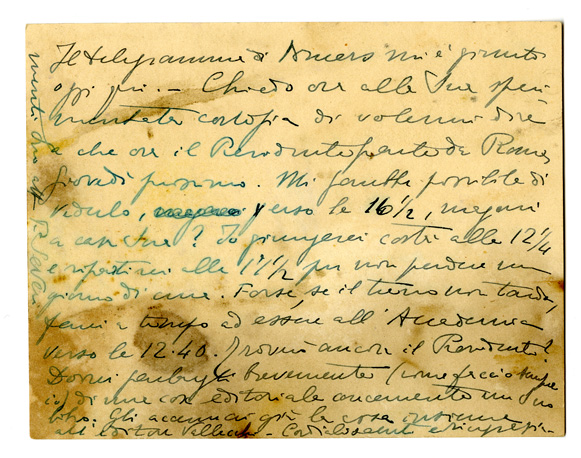 Il telegramma di Amiens mi è giunto
oggi qui. — Chiedo ora alla Sua speri-
mentata cortesia di volermi dire
a che ora il Presidente parte da Roma
giovedì prossimo. Mi sarebbe possibile di
vederlo, verso le 16½, magari
a casa Sua? Io giungerei costà alle 12¼
e ripartirei alle 17½ per non perdere un
giorno di cure. Forse, se il treno non tarda,
farei a tempo ad essere all'Accademia
verso le 12.40. Troverei ancora il Presidente?
Dovrei parlargli brevemente (come faccio sempre
io) di una cosa editoriale concernente un mio
libro. Gli accennai già la cosa insieme
all'editore Vallecchi — Cordialmente